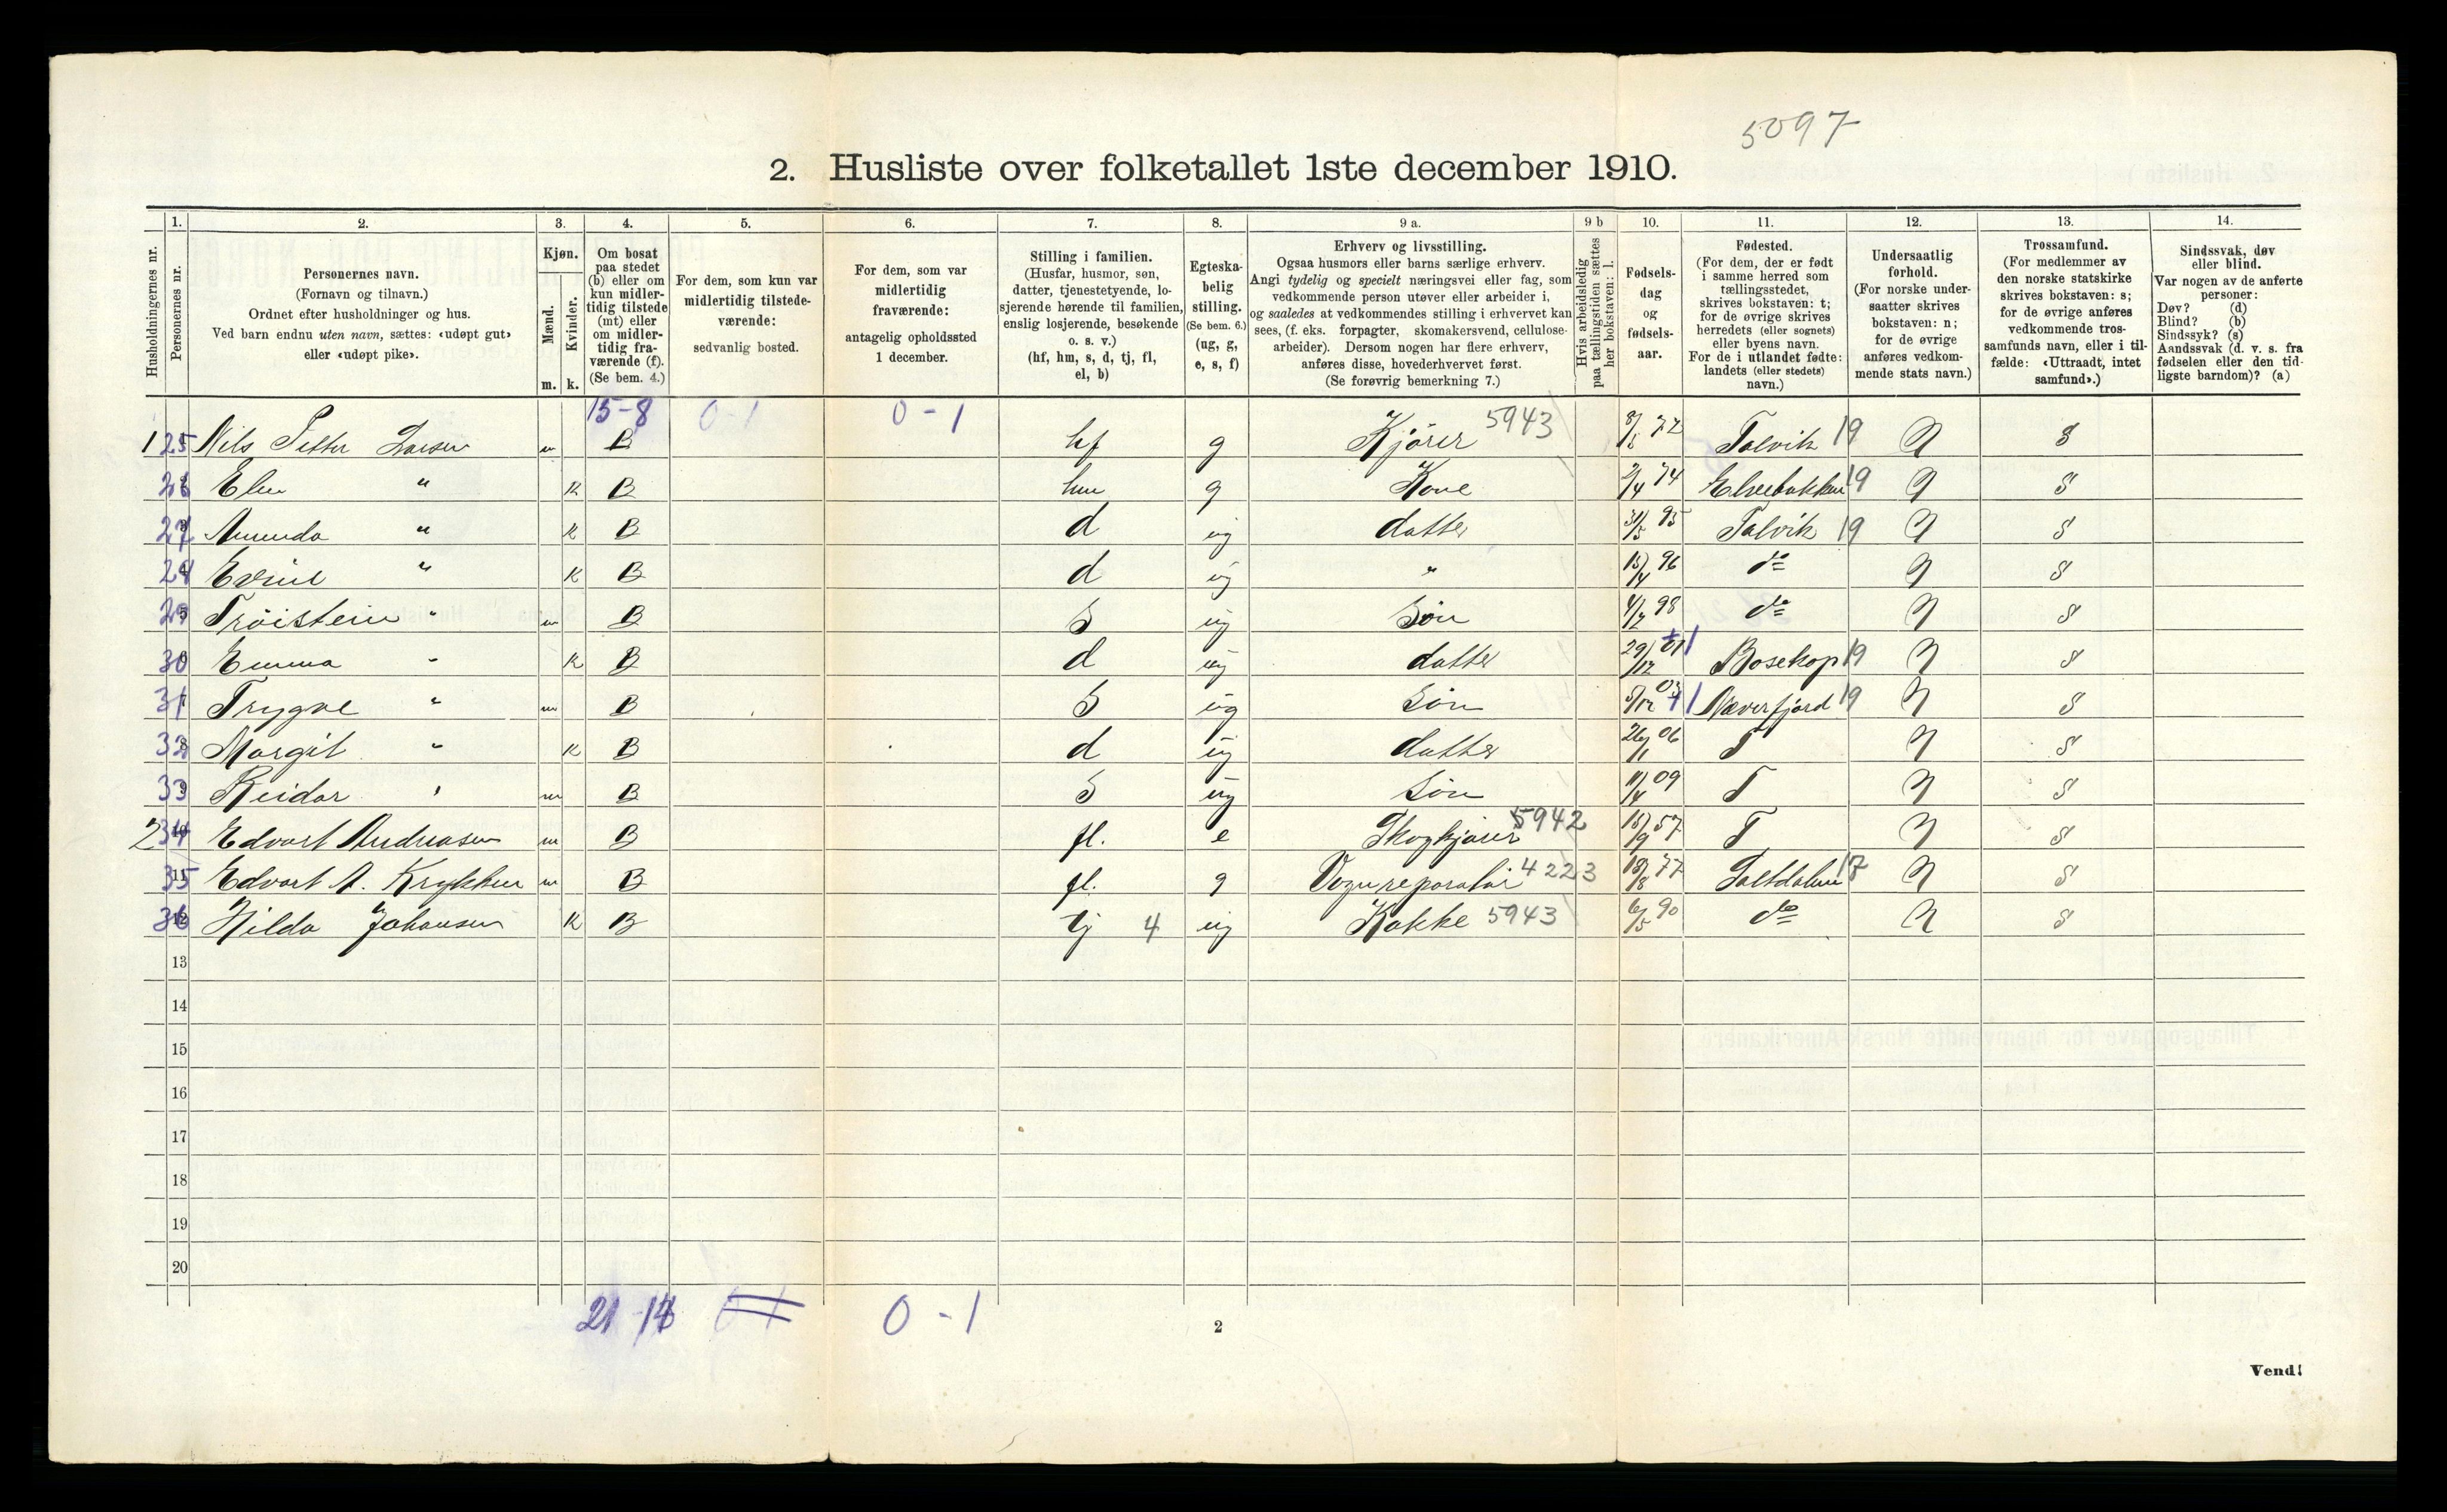 5097
2. Husliste over folketallet 1ste december 1910.
1. 2. 3. 4. 5. 6. 7. 8. 9 a. 9 b 10. 11. 12. 13. 14.
Husholdningernes nr.
Personernes nr.
Personernes navn.
(Fornavn og tilnavn.)
Ordnet efter husholdninger og hus.
Ved barn endnu uten navn, sættes: «udøpt gut»
eller «udøpt pike».
Kjøn.
Mænd.
Kvinder.
m. k.
Om bosat
paa stedet
(b) eller om
kun midler-
tidig tilstede
(mt) eller
om midler-
tidig fra-
værende (f).
(Se bem. 4.)
For dem, som kun var
midlertidig tilstede-
værende:
sedvanlig bosted.
For dem, som var
midlertidig
fraværende:
antagelig opholdssted
1 december.
Stilling i familien.
(Husfar, husmor, søn,
datter, tjenestetyende, lo-
sjerende hørende til familien,
enslig losjerende, besøkende
o. s. v.)
(hf, hm, s, d, tj, fl,
el, b)
Egteska-
belig
stilling.
(Se bem. 6.)
(ug, g,
e, s, f)
Erhverv og livsstilling.
Ogsaa husmors eller barns særlige erhverv.
Angi tydelig og specielt næringsvei eller fag, som
vedkommende person utøver eller arbeider i,
og saaledes at vedkommendes stilling i erhvervet kan
sees, (f. eks. forpagter, skomakersvend, cellulose-
arbeider). Dersom nogen har flere erhverv,
anføres disse, hovederhvervet først.
(Se forøvrig bemerkning 7.)
Hvis arbeidsledig
paa tællingstiden sættes
her bokstaven: l.
Fødsels-
dag
og
fødsels-
aar.
Fødested.
(For dem, der er født
i samme herred som
tællingsstedet,
skrives bokstaven: t;
for de øvrige skrives
herredets (eller sognets)
eller byens navn.
For de i utlandet fødte:
landets (eller stedets)
navn.)
Undersaatlig
forhold.
(For norske under-
saatter skrives
bokstaven: n;
for de øvrige
anføres vedkom-
mende stats navn.)
Trossamfund.
(For medlemmer av
den norske statskirke
skrives bokstaven: s;
for de øvrige anføres
vedkommende tros-
samfunds navn, eller i til-
fælde: «Uttraadt, intet
samfund».)
Sindssvak, døv
eller blind.
Var nogen av de anførte
personer:
Døv? (d)
Blind? (b)
Sindssyk? (s)
Aandssvak (d. v. s. fra
fødselen eller den tid-
ligste barndom)? (a)
15-8 0-1 0-1
1 25 Nils Petter Larsen m B hf g Kjörer 5943 72 Talvik 19 N S
26 Elen " K B hm g Kone 2/4 74 Elvebakken 19 N S
27 Amanda " K B d ug datter 31/5 95 Talvik 19 N S
28 " K B d ug " 13/4 96 do N S
29 Tröistein " m B S ug Sön 4/2 98 do N S
30 Emma " K B d ug datter 29/12 01 1 Bosekop 19 N S
31 Trygve " m B S ug Sön 5/12 03 1 Næverfjord 19 N S
32 Margit " K B d ug datter 26/1 06 T N S
33 Reidar " m B S ug Sön 11/4 09 T N S
2 34 Edvart Andreasen m B fl. e Skogkjörer 5942 18/9 57 T N S
35 Edvart A. Krykken m B fl. g Vognreparatör 4223 18/8 77 Saltdalen 17 N S
36 Hilda Johansen K B tj 4 ug Kokke 5943 6/5 90 do N S
13
14
15
16
17
18
19
20
0-1
2
Vend!